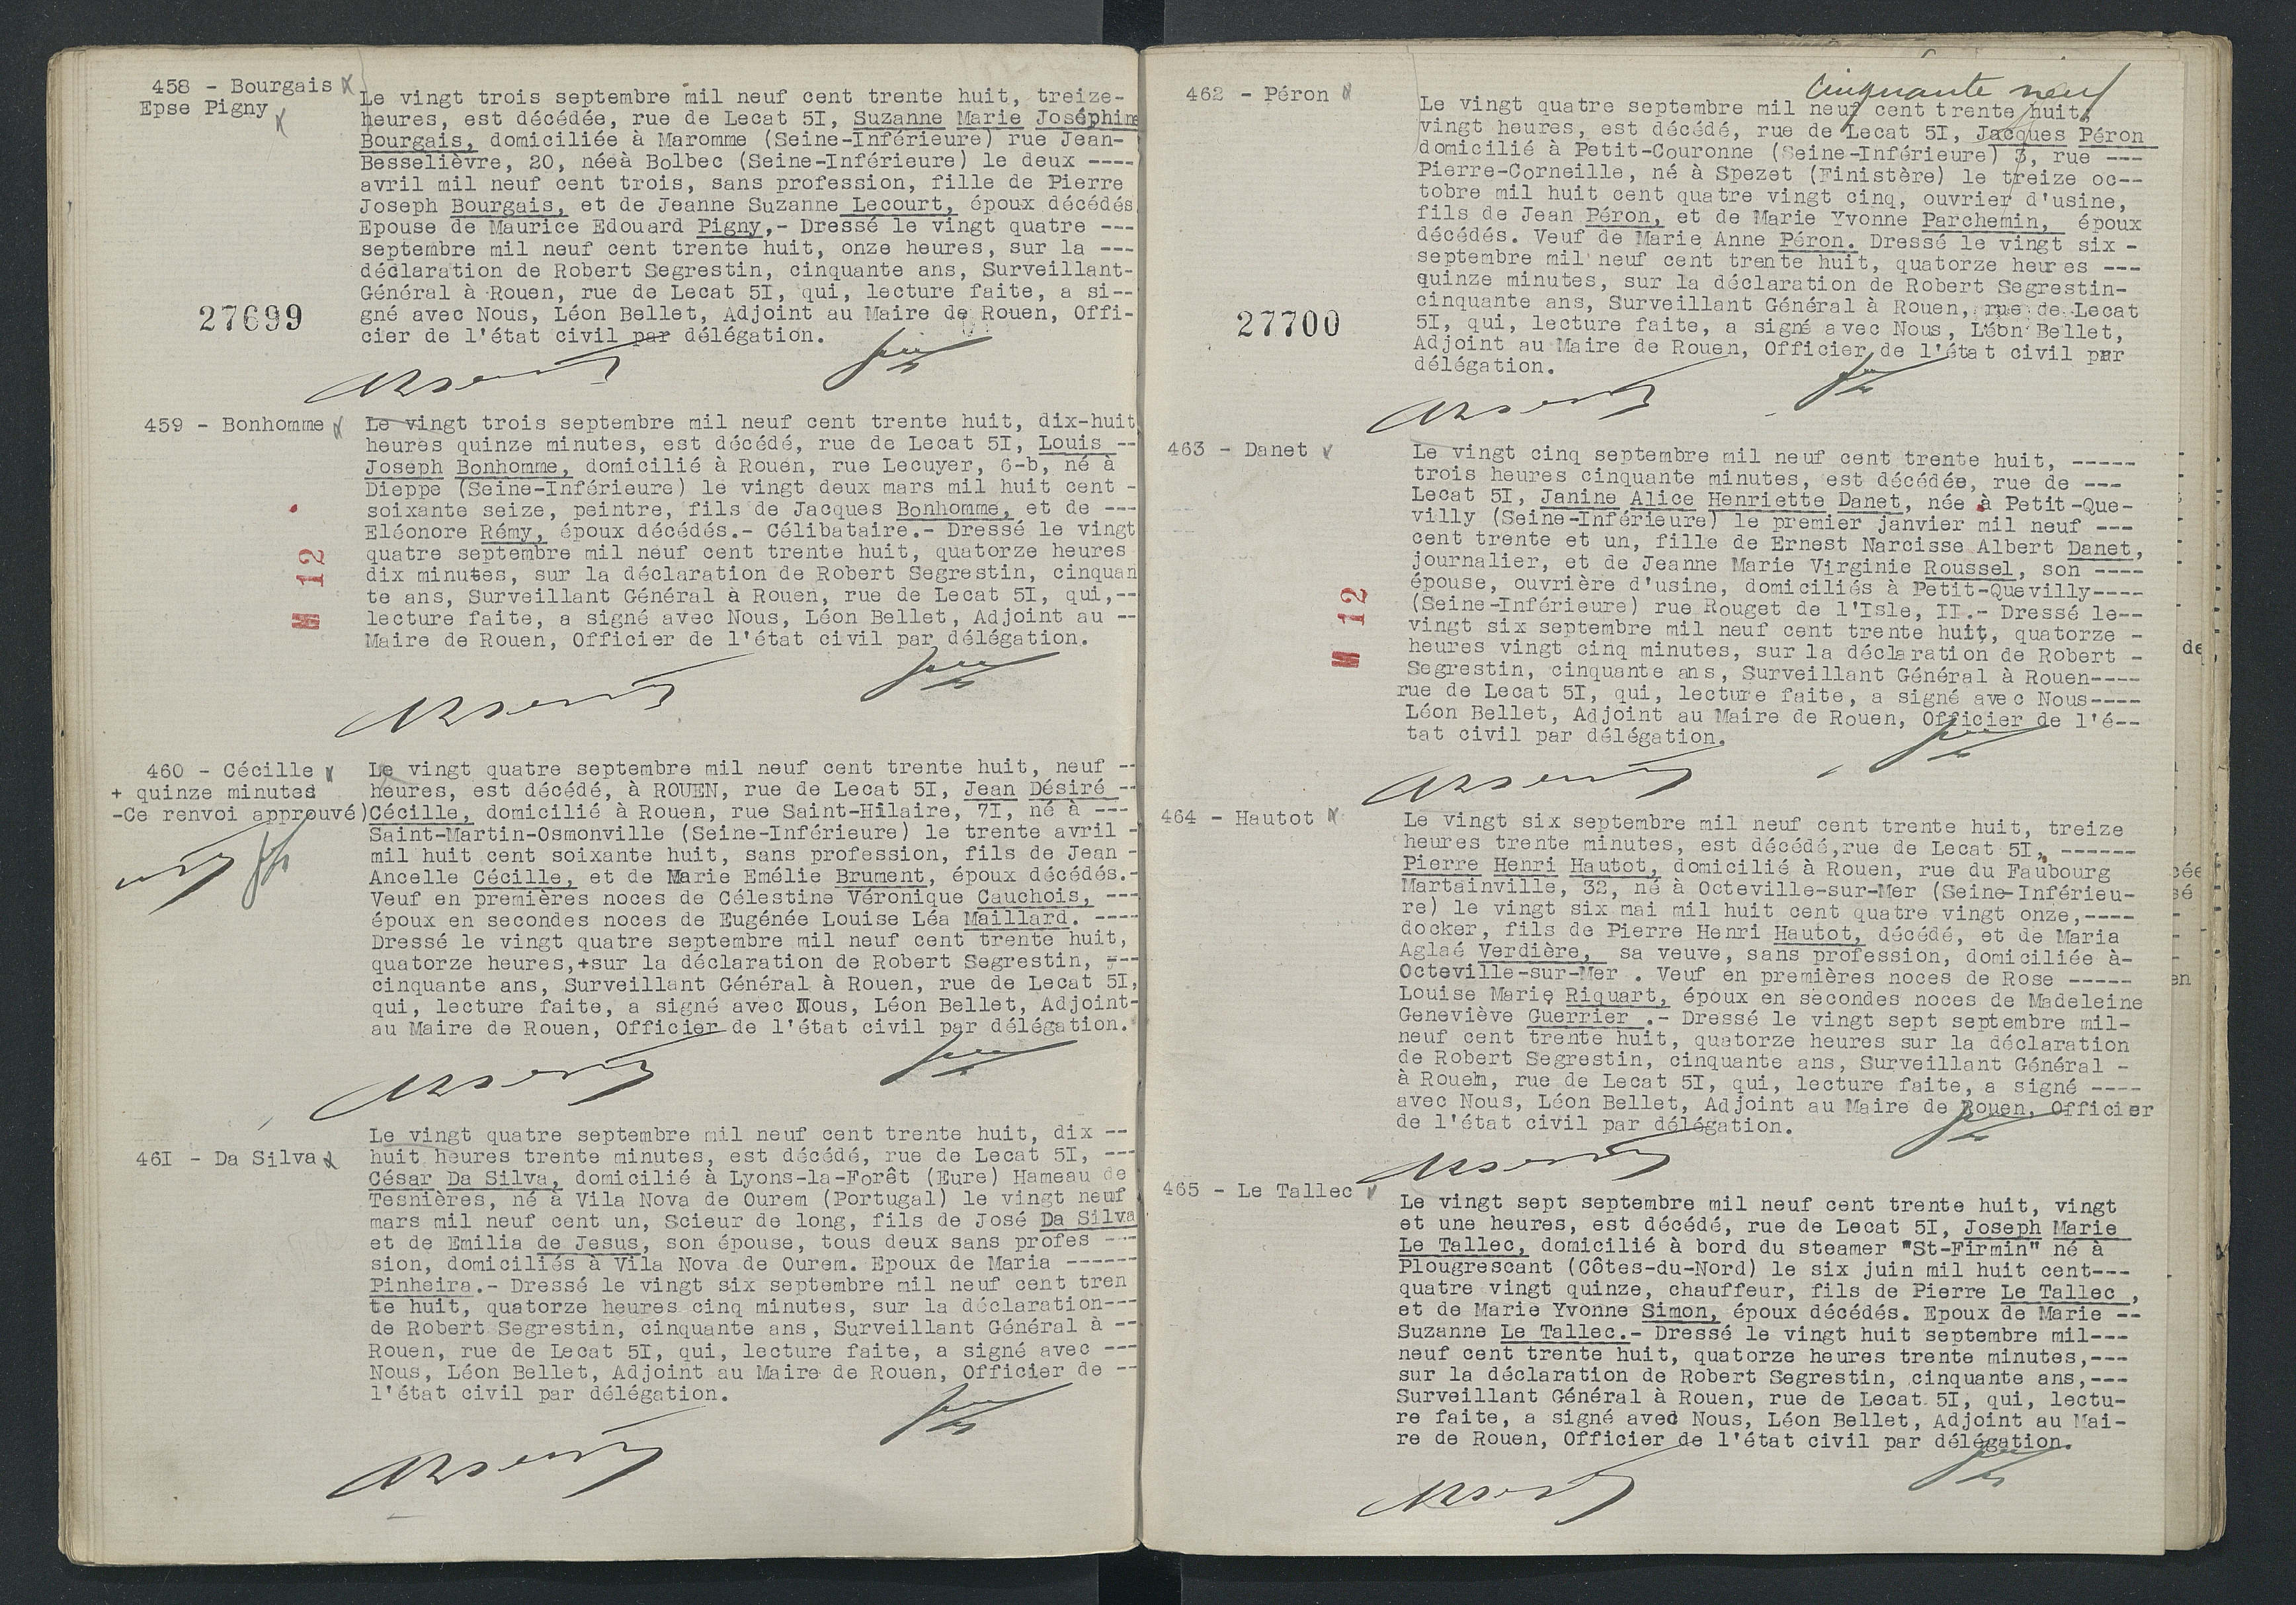 458 - Bourgais
Epse Pigny
Le vingt trois septembre mil neuf cent trente huit, treize-
heures, est décédée, rue de Lecat 5I, Suzanne Marie Joséphine
Bourgais, domiciliée à Maromme (Seine-Inférieure) rue Jean-
Besselièvre, 20, néeà Bolbec (Seine-Inférieure) le deux ----
avril mil neuf cent trois, sans profession, fille de Pierre
Joseph Bourgais, et de Jeanne Suzanne Lecourt, époux décédés
Epouse de Maurice Edouard Pigny,- Dressé le vingt quatre ---
septembre mil neuf cent trente huit, onze heures, sur la ---
déclaration de Robert Segrestin, cinquante ans, Surveillant-
Général à Rouen, rue de Lecat 5I, qui, lecture faite, a si--
gné avec Nous, Léon Bellet, Adjoint au Maire de Rouen, Offi-
cier de l'état civil par délégation.
27699
459 - Bonhomme
Le vingt trois septembre mil neuf cent trente huit, dix-huit
heures quinze minutes, est décédé, rue de Lecat 5I, Louis --
Joseph Bonhomme, domicilié à Rouen, rue Lecuyer, 6-b, né à
Dieppe (Seine-Inférieure) le vingt deux mars mil huit cent -
soixante seize, peintre, fils de Jacques Bonhomme, et de ---
Eléonore Rémy, époux décédés.- Célibataire.- Dressé le vingt
quatre septembre mil neuf cent trente huit, quatorze heures
dix minutes, sur la déclaration de Robert Segrestin, cinquan
te ans, Surveillant Général à Rouen, rue de Lecat 5I, qui,--
lecture faite, a signé avec Nous, Léon Bellet, Adjoint au --
Maire de Rouen, Officier de l'état civil par délégation.
M 12
460 - Cécille
+ quinze minutes
-Ce renvoi approuvé)
Le vingt quatre septembre mil neuf cent trente huit, neuf --
heures, est décédé, à ROUEN, rue de Lecat 5I, Jean Désiré --
Cécille, domicilié à Rouen, rue Saint-Hilaire, 7I, né à ---
Saint-Martin-Osmonville (Seine-Inférieure) le trente avril -
mil huit cent soixante huit, sans profession, fils de Jean -
Ancelle Cécille, et de Marie Emélie Brument, époux décédés.-
Veuf en premières noces de Célestine Véronique Cauchois, ---
époux en secondes noces de Eugénée Louise Léa Maillard. ----
Dressé le vingt quatre septembre mil neuf cent trente huit,
quatorze heures,+sur la déclaration de Robert Segrestin, ---
cinquante ans, Surveillant Général à Rouen, rue de Lecat 5I,
qui, lecture faite, a signé avec Nous, Léon Bellet, Adjoint-
au Maire de Rouen, Officier de l'état civil par délégation.
46I - Da Silva
Le vingt quatre septembre mil neuf cent trente huit, dix --
huit heures trente minutes, est décédé, rue de Lecat 5I, ---
César Da Silva, domicilié à Lyons-la-Forêt (Eure) Hameau de
Tesnières, né à Vila Nova de Ourem (Portugal) le vingt neuf
mars mil neuf cent un, Scieur de long, fils de José Da Silva
et de Emilia de Jesus, son épouse, tous deux sans profes ---
sion, domiciliés à Vila Nova de Ourem. Epoux de Maria ------
Pinheira.- Dressé le vingt six septembre mil neuf cent tren
te huit, quatorze heures cinq minutes, sur la déclaration---
de Robert Segrestin, cinquante ans, Surveillant Général à --
Rouen, rue de Lecat 5I, qui, lecture faite, a signé avec ---
Nous, Léon Bellet, Adjoint au Maire de Rouen, Officier de --
l'état civil par délégation.
cinquante neuf
462 - Péron
Le vingt quatre septembre mil neuf cent trente huit,
vingt heures, est décédé, rue de Lecat 5I, Jacques Péron
domicilié à Petit-Couronne (Seine-Inférieure) 3, rue ---
Pierre-Corneille, né à Spezet (Finistère) le treize oc--
tobre mil huit cent quatre vingt cinq, ouvrier d'usine,
fils de Jean Péron, et de Marie Yvonne Parchemin, époux
décédés. Veuf de Marie Anne Péron. Dressé le vingt six -
septembre mil neuf cent trente huit, quatorze heures ---
quinze minutes, sur la déclaration de Robert Segrestin-
cinquante ans, Surveillant Général à Rouen, rue de Lecat
5I, qui, lecture faite, a signé avec Nous, Léon Bellet,
Adjoint au Maire de Rouen, Officier de l'état civil par
délégation.
27700
463 - Danet
Le vingt cinq septembre mil neuf cent trente huit, -----
trois heures cinquante minutes, est décédée, rue de ---
Lecat 5I, Janine Alice Henriette Danet, née à Petit-Que-
villy (Seine-Inférieure) le premier janvier mil neuf ---
cent trente et un, fille de Ernest Narcisse Albert Danet,
journalier, et de Jeanne Marie Virginie Roussel, son ----
épouse, ouvrière d'usine, domiciliés à Petit-Quevilly----
(Seine-Inférieure) rue Rouget de l'Isle, II.- Dressé le--
vingt six septembre mil neuf cent trente huit, quatorze -
heures vingt cinq minutes, sur la déclaration de Robert -
Segrestin, cinquante ans, Surveillant Général à Rouen----
rue de Lecat 5I, qui, lecture faite, a signé avec Nous----
Léon Bellet, Adjoint au Maire de Rouen, Officier de l'é--
tat civil par délégation.
M 12
464 - Hautot
Le vingt six septembre mil neuf cent trente huit, treize
heures trente minutes, est décédé,rue de Lecat 5I, ------
Pierre Henri Hautot, domicilié à Rouen, rue du Faubourg
Martainville, 32, né à Octeville-sur-Mer (Seine-Inférieu-
re) le vingt six mai mil huit cent quatre vingt onze,----
docker, fils de Pierre Henri Hautot, décédé, et de Maria
Aglaé Verdière, sa veuve, sans profession, domiciliée à-
Octeville-sur-Mer . Veuf en premières noces de Rose -----
Louise Marie Riquart, époux en secondes noces de Madeleine
Geneviève Guerrier .- Dressé le vingt sept septembre mil-
neuf cent trente huit, quatorze heures sur la déclaration
de Robert Segrestin, cinquante ans, Surveillant Général -
à Rouen, rue de Lecat 5I, qui, lecture faite, a signé ----
avec Nous, Léon Bellet, Adjoint au Maire de Rouen, Officier
de l'état civil par délégation.
465 - Le Tallec
Le vingt sept septembre mil neuf cent trente huit, vingt
et une heures, est décédé, rue de Lecat 5I, Joseph Marie
Le Tallec, domicilié à bord du steamer "St-Firmin" né à
Plougrescant (Côtes-du-Nord) le six juin mil huit cent---
quatre vingt quinze, chauffeur, fils de Pierre Le Tallec ,
et de Marie Yvonne Simon, époux décédés. Epoux de Marie --
Suzanne Le Tallec.- Dressé le vingt huit septembre mil---
neuf cent trente huit, quatorze heures trente minutes,---
sur la déclaration de Robert Segrestin, cinquante ans,---
Surveillant Général à Rouen, rue de Lecat 5I, qui, lectu-
re faite, a signé avec Nous, Léon Bellet, Adjoint au Mai-
re de Rouen, Officier de l'état civil par délégation.